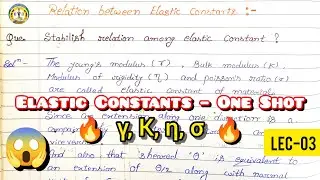 Relation between Elastic Constants :-
Que. Stabilish relation among elastic constant ?
Solⁿ- The young's modulus (Y), Bulk modulus (K),
Modulus of rigidity (η) and poisson's ratio (σ)
are called elastic constant of material.
Elastic Constants - One Shot
Since an extension along
γ, K, η, σ
LEC-03
And also that sheared 'θ' is equivalent to
an extension of θ/2 along with normal